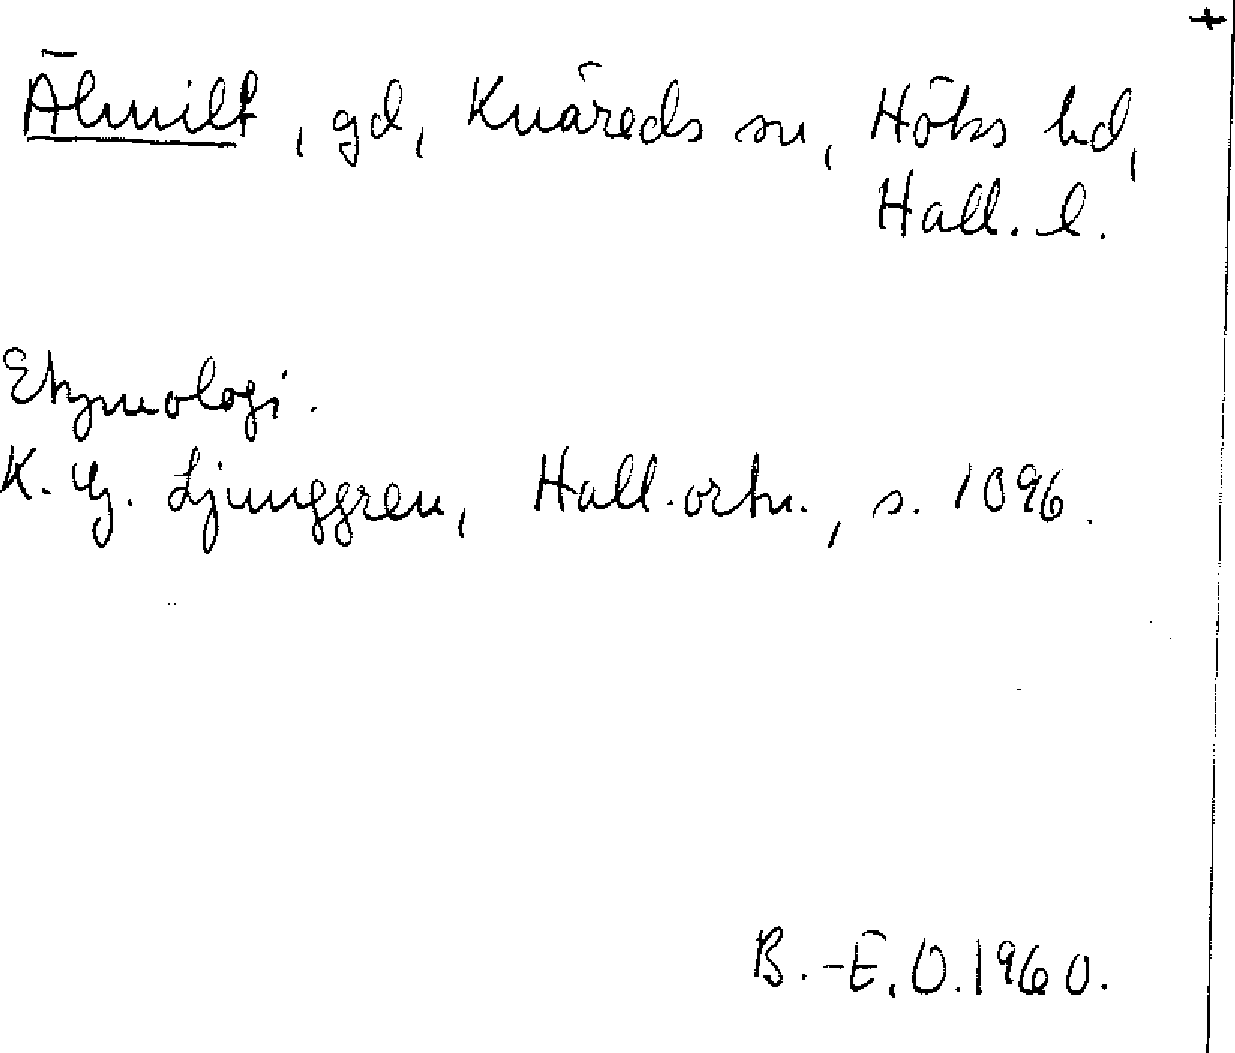 +
Älmilt, gd, Knäreds sn, Höks hd,
Hall. l.
Etymologi.
K. G. Ljunggren, Hall. ortn., s. 1096.
B.-E. O. 1960.